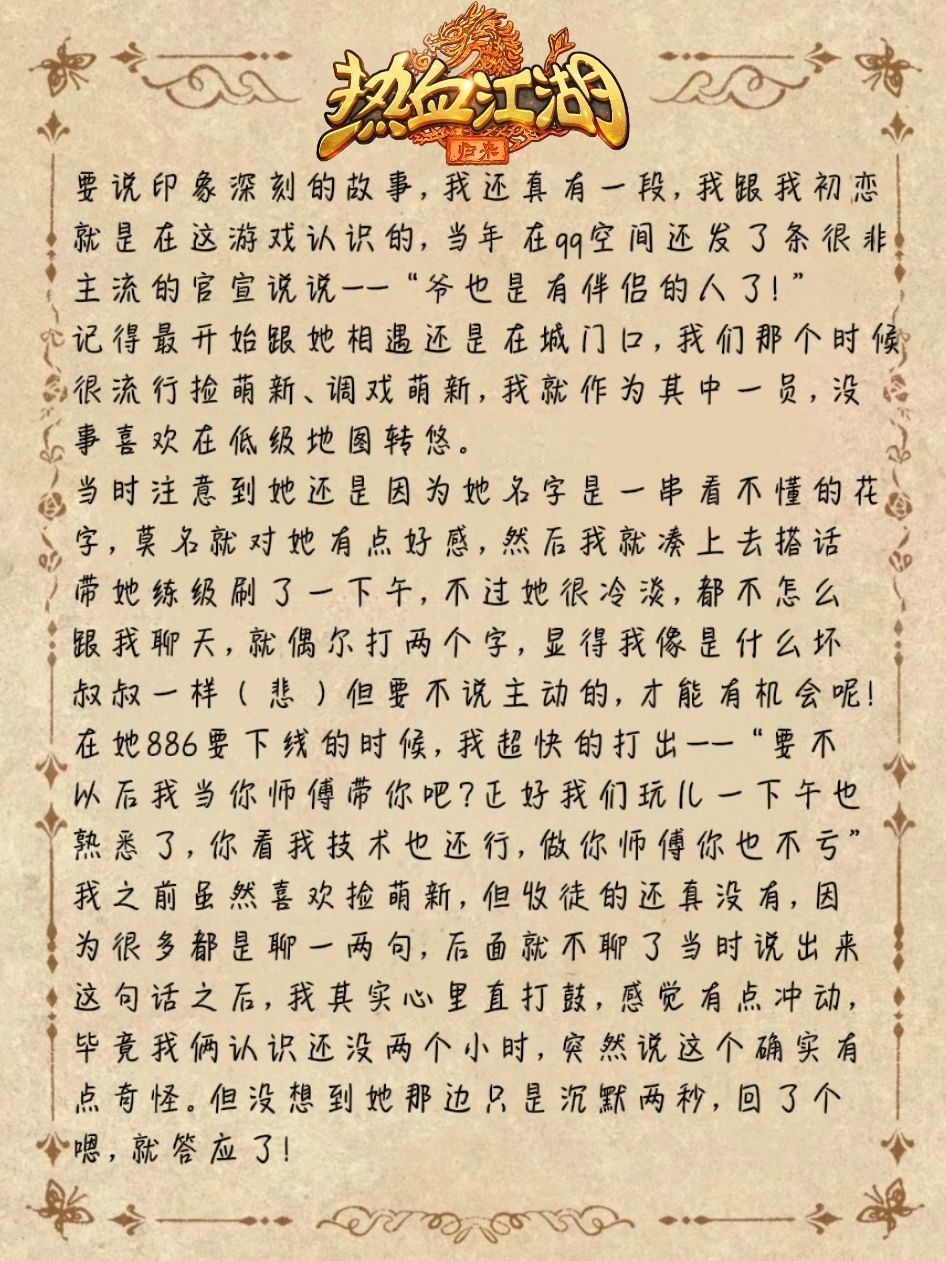 热血江湖
归来
要说印象深刻的故事,我还真有一段,我跟我初恋
就是在这游戏认识的,当年 在qq空间还发了条很非
主流的官宣说说——“爷也是有伴侣的人了!”
记得最开始跟她相遇还是在城门口,我们那个时候
很流行捡萌新、调戏萌新,我就作为其中一员,没
事喜欢在低级地图转悠。
当时注意到她还是因为她名字是一串看不懂的花
字,莫名就对她有点好感,然后我就凑上去搭话
带她练级刷了一下午,不过她很冷淡,都不怎么
跟我聊天,就偶尔打两个字,显得我像是什么坏
叔叔一样(悲)但要不说主动的,才能有机会呢!
在她886要下线的时候,我超快的打出——“要不
以后我当你师傅带你吧?正好我们玩儿一下午也
熟悉了,你看我技术也还行,做你师傅你也不亏”
我之前虽然喜欢捡萌新,但收徒的还真没有,因
为很多都是聊一两句,后面就不聊了当时说出来
这句话之后,我其实心里直打鼓,感觉有点冲动,
毕竟我俩认识还没两个小时,突然说这个确实有
点奇怪。但没想到她那边只是沉默两秒,回了个
嗯,就答应了!